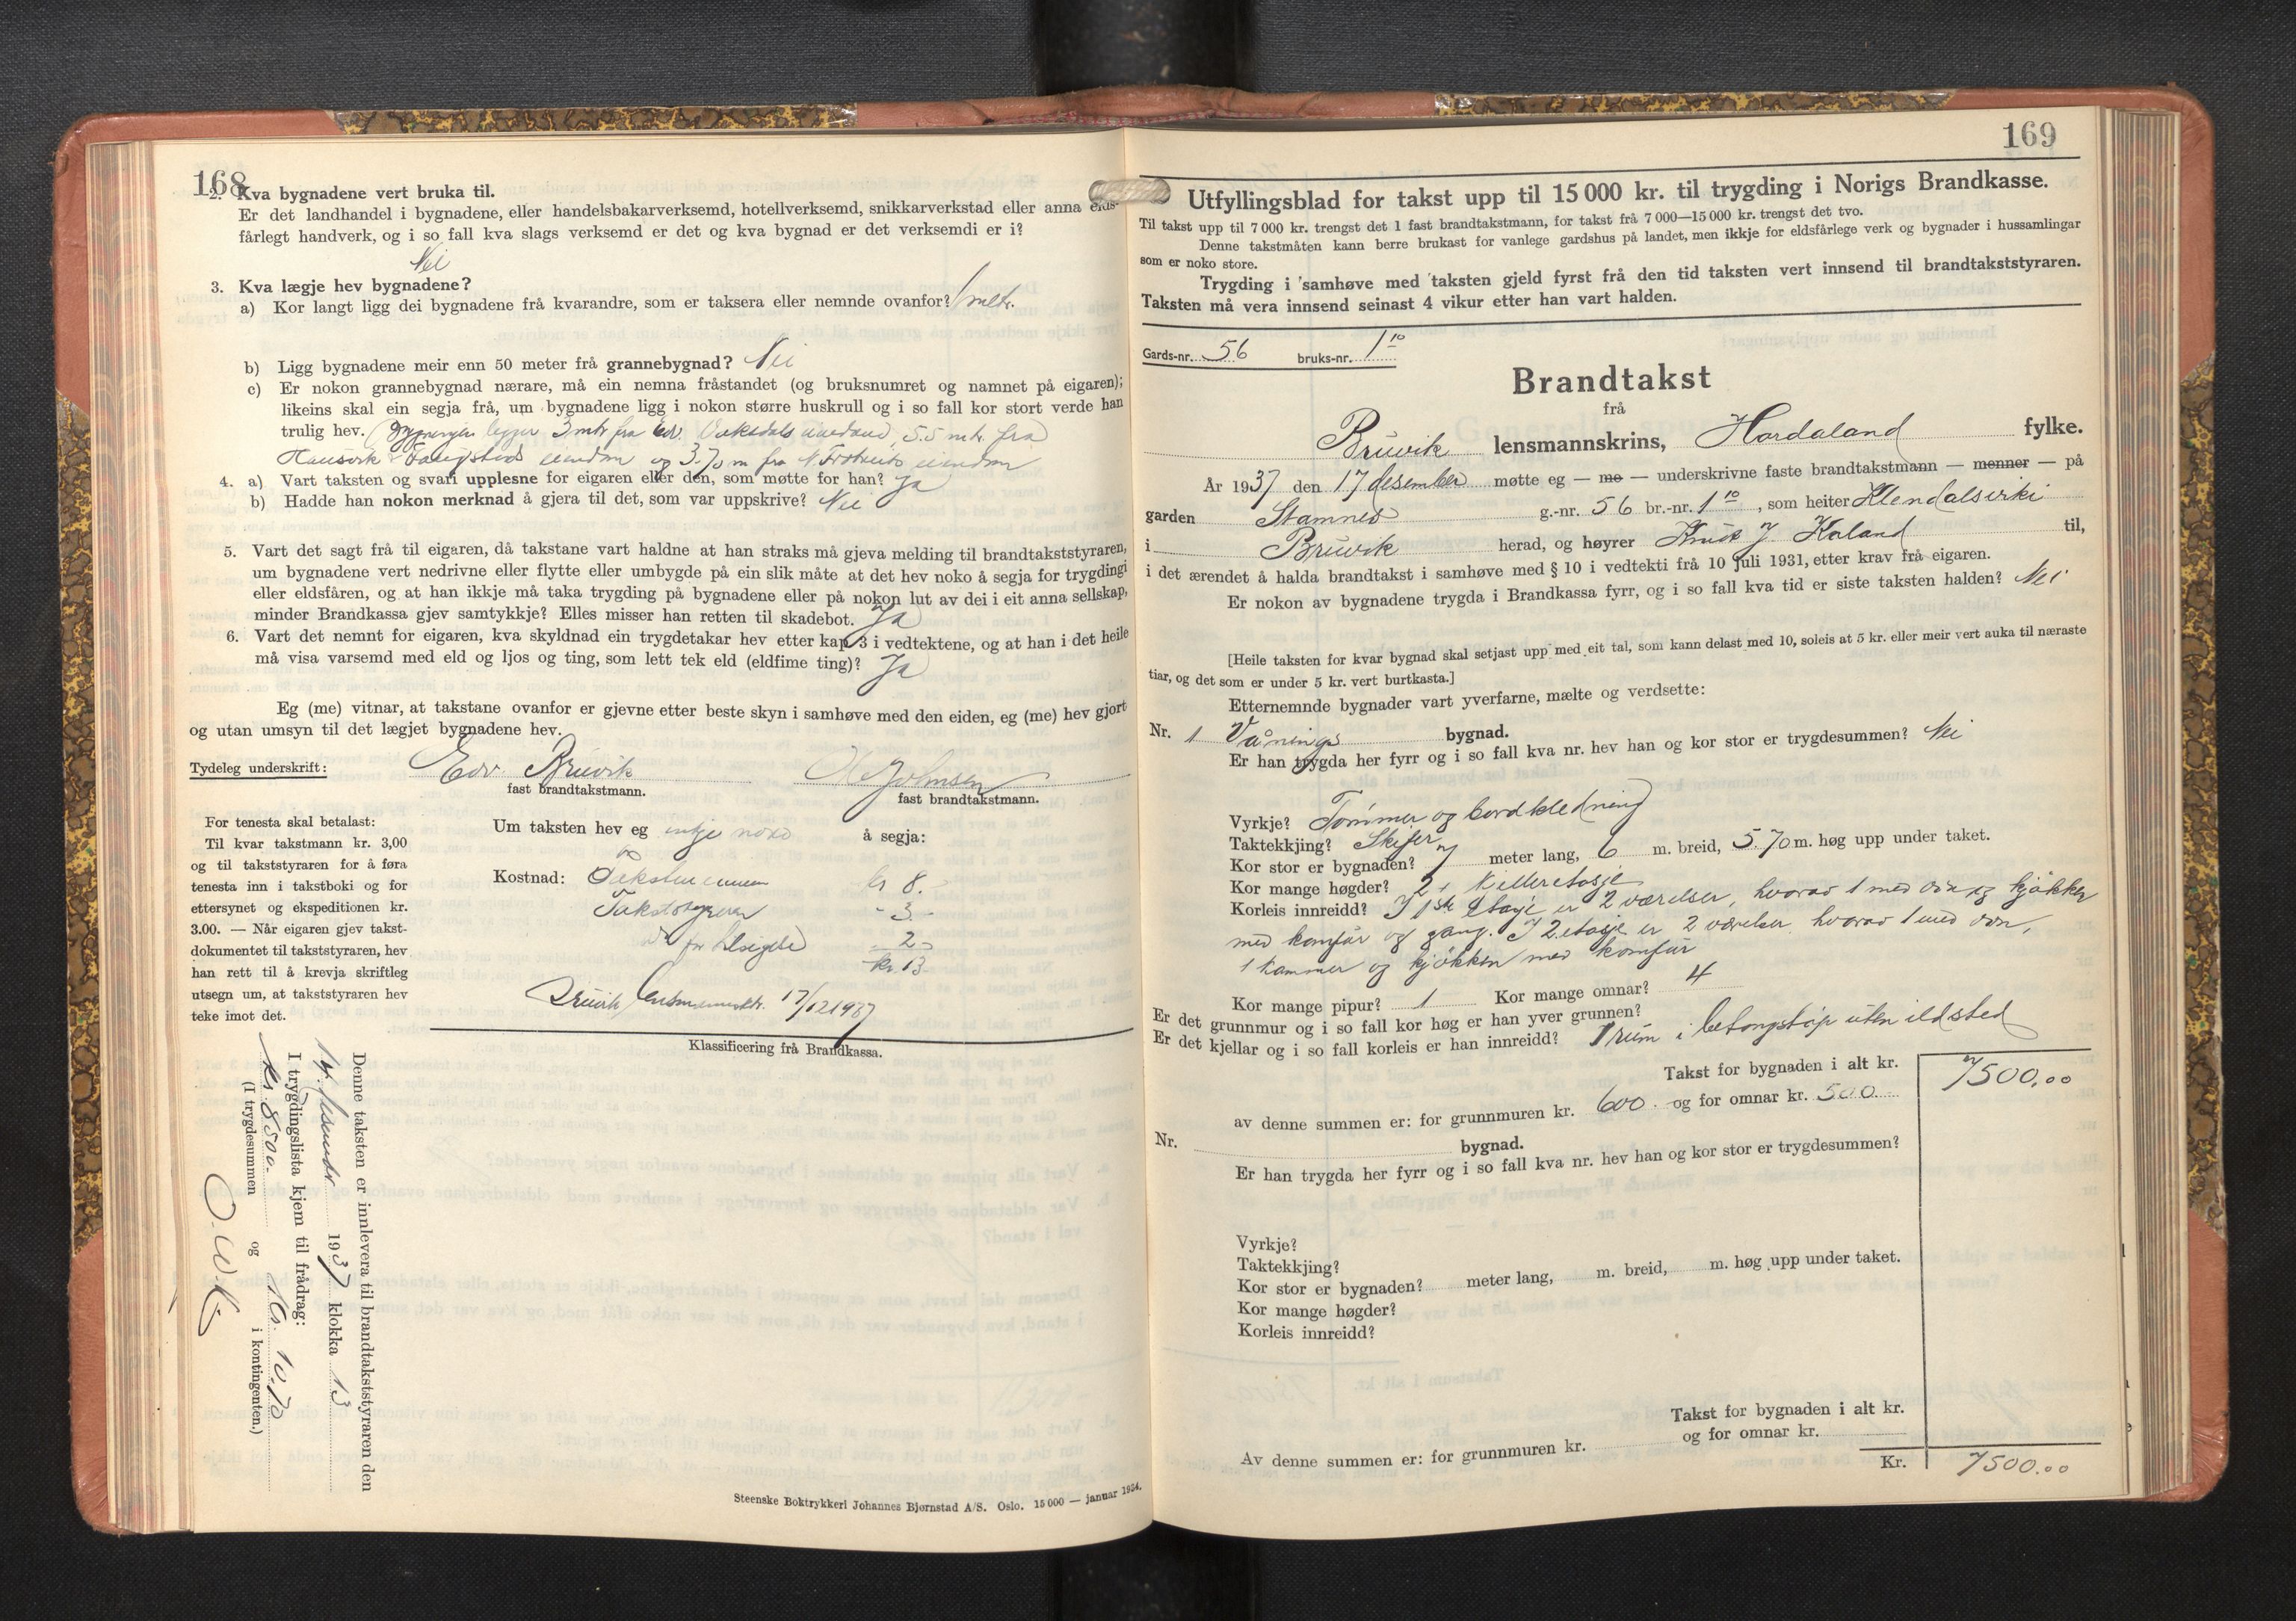 168
2. Kva bygnadene vert bruka til.
Er det landhandel i bygnadene, eller handelsbakarverksemd, hotellverksemd, snikkarverkstad eller anna elds-
fårlegt handverk, og i so fall kva slags verksemd er det og kva bygnad er det verksemdi er i?
Nei
3. Kva lægje hev bygnadene?
a) Kor langt ligg dei bygnadene frå kvarandre, som er taksera eller nemnde ovanfor? 1 mtr.
b) Ligg bygnadene meir enn 50 meter frå grannebygnad? Nei
c) Er nokon grannebygnad nærare, må ein nemna fråstandet (og bruksnumret og namnet på eigaren);
likeins skal ein segja frå, um bygnadene ligg i nokon større huskrull og i so fall kor stort verde han
trulig hev. Bygningen ligger 3 mtr fra Edv. 5.5 mtr. fra
eiendom og 3.70 m fra N. eiendom
4. a) Vart taksten og svari upplesne for eigaren eller den, som møtte for han? Ja
b) Hadde han nokon merknad å gjera til det, som var uppskrive? Nei
5. Vart det sagt frå til eigaren, då takstane vart haldne at han straks må gjeva melding til brandtakststyraren,
um bygnadene vert nedrivne eller flytte eller umbygde på ein slik måte at det hev noko å segja for trygdingi
eller eldsfåren, og at han ikkje må taka trygding på bygnadene eller på nokon lut av dei i eit anna sellskap,
minder Brandkassa gjev samtykkje? Elles misser han retten til skadebot. Ja
6. Vart det nemnt for eigaren, kva skyldnad ein trygdetakar hev etter kap 3 i vedtektene, og at han i det heile
må visa varsemd med eld og ljos og ting, som lett tek eld (eldfime ting)? Ja
Eg (me) vitnar, at takstane ovanfor er gjevne etter beste skyn i samhøve med den eiden, eg (me) hev gjort
og utan umsyn til det lægjet bygnadene hev.
Tydeleg underskrift: Edv Bruvik Johnsen
fast brandtakstmann. fast brandtakstmann.
For tenesta skal betalast:
Til kvar takstmann kr. 3,00
og til takststyraren for å føra
tenesta inn i takstboki og for
ettersynet og ekspeditionen kr.
3.00. — Når eigaren gjev takst-
dokumentet til takststyraren, hev
han rett til å krevja skriftleg
utsegn um, at takststyraren hev
teke imot det.
Um taksten hev eg intje noko å segja:
Kostnad: Takstmennene kr 8.-
Takststyraren - 3.-
for - 2 -
kr. 13
Bruvik lensmannsktr. 17/12 1937
Klassificering frå Brandkassa.
Denne taksten er innlevera til brandtakststyraren den
17. desember 1937 klokka 13
I trygdingslista kjem til frådrag:
kr. 8500. og kr. 10.70
(I trygdesummen i kontingenten.)
Steenske Boktrykkeri Johannes Bjørnstad A/S. Oslo. 15 000 — januar 1934.
169
Utfyllingsblad for takst upp til 15 000 kr. til trygding i Norigs Brandkasse.
Til takst upp til 7 000 kr. trengst det 1 fast brandtakstmann, for takst frå 7 000—15 000 kr. trengst det tvo.
Denne takstmåten kann berre brukast for vanlege gardshus på landet, men ikkje for eldsfårlege verk og bygnader i hussamlingar
som er noko store.
Trygding i samhøve med taksten gjeld fyrst frå den tid taksten vert innsend til brandtakststyraren.
Taksten må vera innsend seinast 4 vikur etter han vart halden.
Gards-nr. 56 bruks-nr. 1 10
Brandtakst
frå
Bruvik lensmannskrins, Hordaland fylke.
År 1937 den 17 desember møtte eg — me — underskrivne faste brandtakstmann — menner — på
garden Stamnes g.-nr. 56 br.-nr. 1 10, som heiter
i Bruvik herad, og høyrer Knut J. Kaland til,
i det ærendet å halda brandtakst i samhøve med § 10 i vedtekti frå 10 juli 1931, etter krav frå eigaren.
Er nokon av bygnadene trygda i Brandkassa fyrr, og i so fall kva tid er siste taksten halden? Nei
[Heile taksten for kvar bygnad skal setjast upp med eit tal, som kann delast med 10, soleis at 5 kr. eller meir vert auka til næraste
tiar, og det som er under 5 kr. vert burtkasta.]
Etternemnde bygnader vart yverfarne, mælte og verdsette:
Nr. 1 Vånings bygnad.
Er han trygda her fyrr og i so fall kva nr. hev han og kor stor er trygdesummen? Nei
Vyrkje? Tømmer og bordkledning
Taktekkjing? Skifer
Kor stor er bygnaden? 7 meter lang, 6 m. breid, 5.70 m. høg upp under taket.
Kor mange høgder? 2 + kjelleretasje
Korleis innreidd? I 1ste etasje er 2 værelser, hvorav 1 med ovn og kjøkken
med komfur og gang. I 2. etasje er 2 værelser hvorav 1 med ovn,
1 kammer og kjøkken med komfur
Kor mange pipur? 1 Kor mange omnar? 4
Er det grunnmur og i so fall kor høg er han yver grunnen?
Er det kjellar og i so fall korleis er han innreidd? 1 rum i betongstøp uten ildsted
Takst for bygnaden i alt kr. 7500.00
av denne summen er: for grunnmuren kr. 600. og for omnar kr. 500
Nr. bygnad.
Er han trygda her fyrr og i so fall kva nr. hev han og kor stor er trygdesummen?
Vyrkje?
Taktekkjing?
Kor stor er bygnaden? meter lang, m. breid, m. høg upp under taket.
Kor mange høgder?
Korleis innreidd?
Takst for bygnaden i alt kr.
Av denne summen er: for grunnmuren kr. og for omnar kr.
Kr. 7500.00